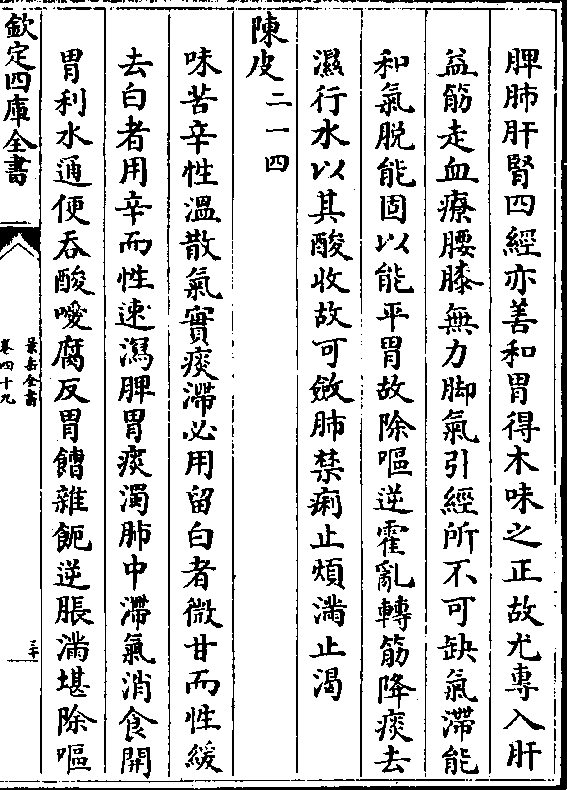 脾肺肝腎四經亦善和胃得木味之正故尤專入肝
益筋走血療腰膝無力脚氣引經所不可缺氣滯能
和氣脱能固以能平胃故除嘔逆霍亂轉筋降痰去
濕行水以其酸收故可斂肺禁痢止煩滿止渴
陳皮二一四
味苦辛性温散氣實痰滯必用留白者微甘而性緩
去白者用辛而性速瀉脾胃痰濁肺中滯氣消食開
胃利水通便吞酸噯腐反胃饍雜呃逆脹滿堪除嘔
欽定四庫全書
景岳全書
卷四十九
三十